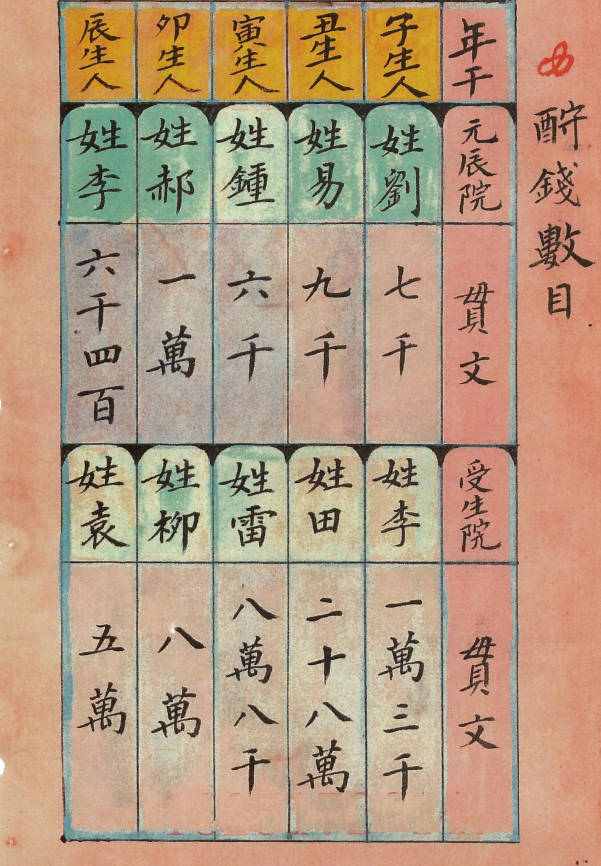 酧錢數目
年干
元辰院
貫文
受生院
貫文
子生人
姓劉
七千
姓李
一萬三千
丑生人
姓易
九千
姓田
二十八萬
寅生人
姓鍾
六千
姓雷
八萬八千
卯生人
姓郝
一萬
姓柳
八萬
辰生人
姓李
六千四百
姓袁
五萬